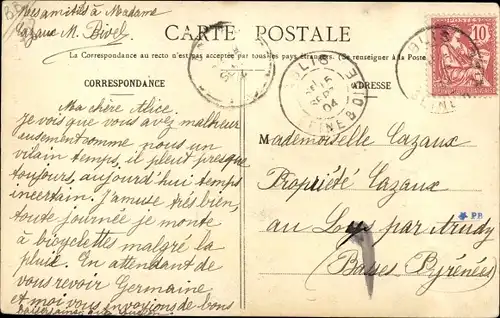 mes amitiés à Madame
Cazaux M. Bivel
CARTE POSTALE
La Correspondance au recto n'est pas acceptée par tous les pays étrangers. (Se renseigner à la Poste
CORRESPONDANCE
ADRESSE
POSTES
10
SENLIS
04
SEINE & OISE
Ma chère Alice.
Je vois que vous avez malheur
eusement comme nous un
vilain temps, il pleut presque
toujours, aujourd'hui temps
incertain. J'amuse très bien,
toute journée je monte
à bicyclettes malgré la
pluie. En attendant de
vous revoir Germaine
et moi vous envoyions de bons
Mademoiselle Cazaux
Propriété Cazaux
au Loys par Arudy
(Basses Pyrénées)
PB
1